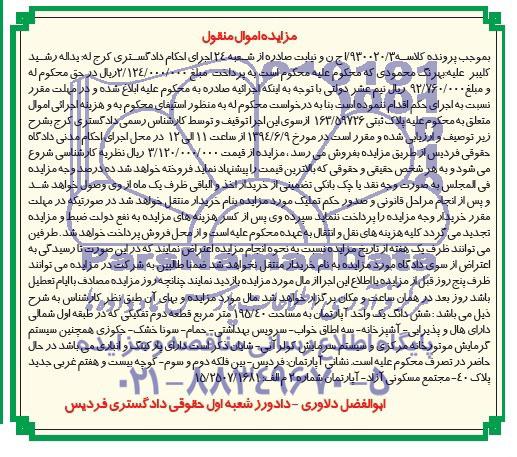 مزایده اموال منقول
بموجب پرونده کلاسه ۹۳۰۰۲۰/۳/اجرا و نیابت صادره از شعبه ۲۴ اجرای احکام دادگستری کرج له: یداله رشید
کلیبر علیه بهرنگ محمودی که محکوم علیه محکوم است به پرداخت مبلغ ۲/۱۲۴/۰۰۰/۰۰۰ ریال در حق محکوم له
و مبلغ ۹۲/۷۶۰/۰۰۰ ریال نیم عشر دولتی با توجه به اینکه اجرائیه صادره به محکوم علیه ابلاغ شده و در مهلت مقرر
نسبت به اجرای حکم اقدام ننموده است بنا به درخواست محکوم له به منظور استیفای محکوم به و هزینه اجرائی اموال
متعلق به محکوم علیه پلاک ثبتی ۱۶۳/۵۹۷۲۶ ازسوی این اجرا توقیف و توسط کارشناس رسمی دادگستری کرج بشرح
زیر توصیف و ارزیابی شده و مقرر است در مورخ ۱۳۹۴/۶/۹ از ساعت ۱۱ الی ۱۲ در محل اجرای احکام مدنی دادگاه
حقوقی فردیس از طریق مزایده بفروش می رسد ، مزایده از قیمت ۳/۱۲۰/۰۰۰/۰۰۰ ریال نظریه کارشناسی شروع
می شود و به هر شخص حقیقی و حقوقی که بالاترین قیمت را پیشنهاد نماید فروخته خواهد شد ده درصد وجه مزایده
فی المجلس به صورت وجه نقد یا چک بانکی تضمینی از خریدار اخذ و الباقی ظرف یک ماه از وی وصول خواهد شد
و پس از انجام مراحل قانونی و صدور حکم تملیک مورد مزایده بنام خریدار منتقل خواهد شد در صورتیکه در مهلت
مقرر خریدار وجه مزایده را پرداخت ننماید سپرده وی پس از کسر هزینه های مزایده به نفع دولت ضبط و مزایده
تجدید می گردد کلیه هزینه های نقل و انتقال به عهده محکوم علیه است و از محل فروش پرداخت خواهد شد. طرفین
می توانند ظرف یک هفته از تاریخ مزایده نسبت به نحوه انجام مزایده اعتراض نمایند که در این صورت تا رسیدگی به
اعتراض از سوی دادگاه مورد مزایده به نام خریدار منتقل نخواهد شد. ضمنا طالبین به شرکت در مزایده می توانند
ظرف پنج روز قبل از مزایده با اطلاع این اجرا از مال مورد مزایده بازدید نمایند چنانچه روز مزایده مصادف با ایام تعطیل
باشد روز بعد در همان ساعت و مکان برگزار خواهد شد. مال مورد مزایده و بهای آن طبق نظر کارشناس به شرح
ذیل می باشد : شش دانگ یک واحد آپارتمان به مساحت ۱۹۵/۴۰ متر مربع قطعه دوم تفکیکی که در طبقه اول شمالی
دارای هال و پذیرایی – آشپزخانه – سه اطاق خواب – سرویس بهداشتی – حمام – سونا خشک – جکوزی همچنین سیستم
گرمایش موتورخانه مرکزی و سیستم سرمایش کولر آبی – شایان ذکر است دارای پارکینگ و انباری می باشد در حال
حاضر در تصرف محکوم علیه است. نشانی آپارتمان: فردیس – بین فلکه دوم و سوم – کوچه بیست و هفتم غربی جدید
پلاک ۴۰ – مجتمع مسکونی آزاد – آپارتمان شماره ۲ م الف: ۱۵/۲۵۰۷/۱۶۸۱
ابوالفضل دلاوری – دادورز شعبه اول حقوقی دادگستری فردیس
ParsNamadData
۰۲۱-۸۸۳۴۹۶۷۰-۵